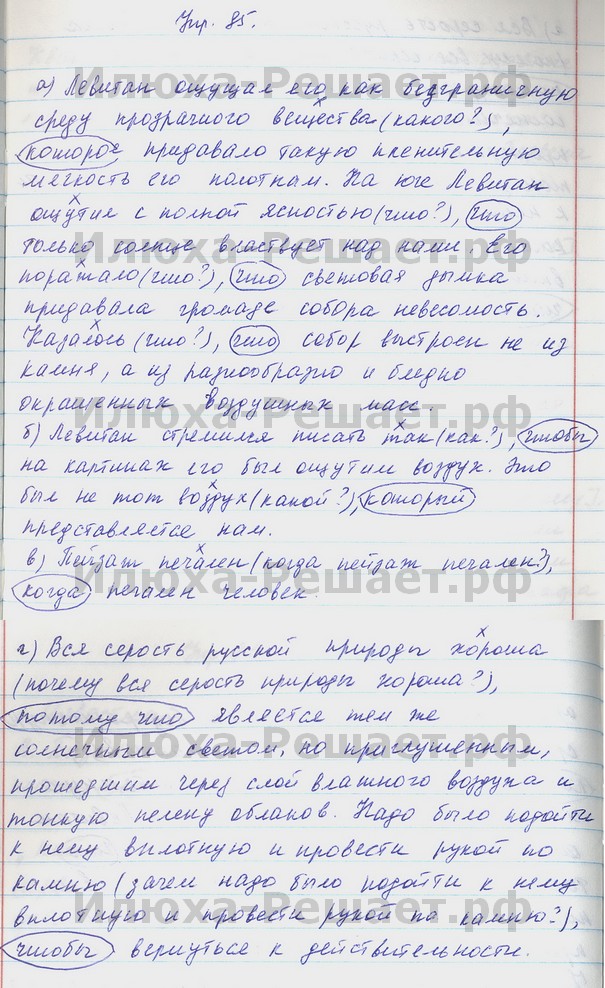 Упр. 85.
а) Левитан ощущал его как безграничную
среду прозрачного вещества (какого?),
которое придавало такую пленительную
мягкость его полотнам. На юге Левитан
ощутил с полной ясностью (что?), что
только солнце властвует над нами. Его
поражало (что?), что световая дымка
придавала громаде собора невесомость.
Казалось (что?), что собор выстроен не из
камня, а из разнообразно и бледно
окрашенных воздушных масс.
б) Левитан стремился писать так (как?), чтобы
на картинах его был ощутим воздух. Это
был не тот воздух (какой?), который
представляется нам.
в) Пейзаж печален (когда пейзаж печален?),
когда печален человек.
г) Вся серость русской природы хороша
(почему вся серость природы хороша?),
потому что является тем же
солнечным светом, но приглушенным,
прошедшим через слой влажного воздуха и
тонкую пелену облаков. Надо было подойти
к нему вплотную и провести рукой по
камню (зачем надо было подойти к нему
вплотную и провести рукой по камню?),
чтобы вернуться к действительности.
Илюха-Решает.рф
Илюха-Решает.рф
Илюха-Решает.рф
Илюха-Решает.рф
Илюха-Решает.рф
Илюха-Решает.рф
Илюха-Решает.рф
Илюха-Решает.рф